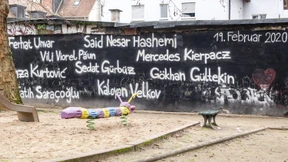 Ferhat Unvar Said Nesar Hashemi 19. Februar 2020
Vili Viorel Păun Mercedes Kierpacz
mza Kurtović Sedat Gürbüz Gökhan Gültekin
Fatih Saraçoğlu Kaloyan Velkov